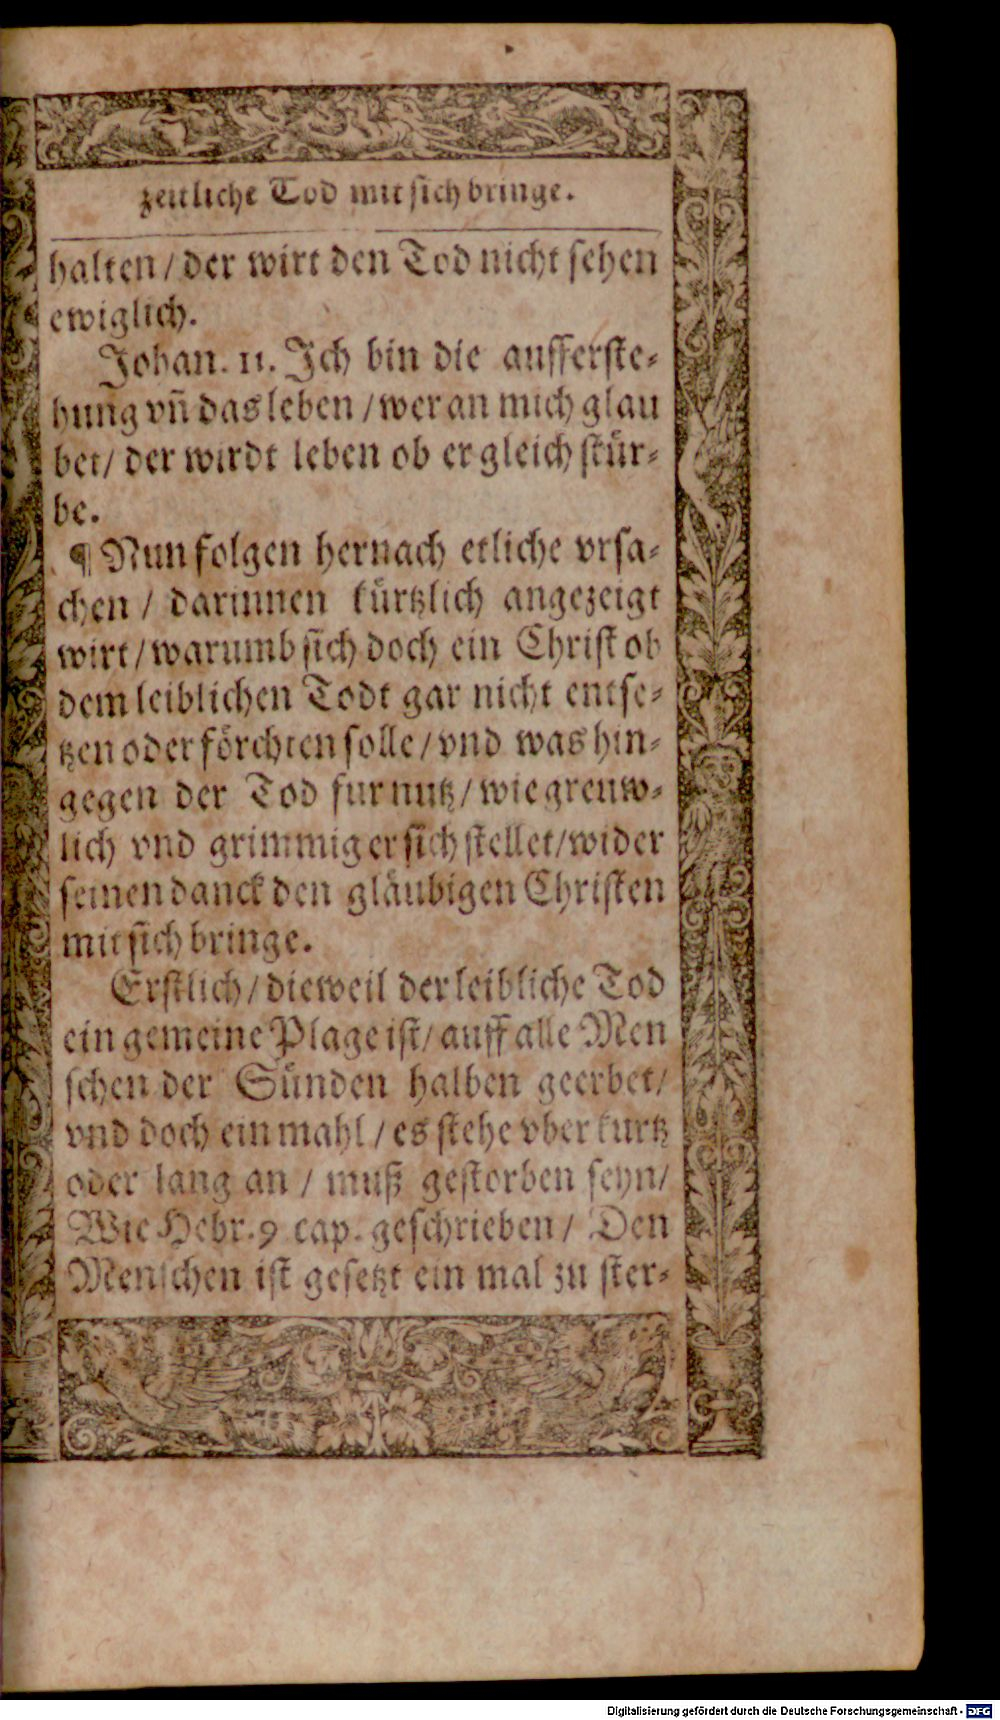 zeitliche Tod mit sich bringe.
halten / der wirt den Tod nicht sehen
ewiglich.
Johan. 11. Ich bin die aufferste-
hung vñ das leben / wer an mich glau
bet / der wirdt leben ob er gleich stür-
be.
¶ Nun folgen hernach etliche vrsa-
chen / darinnen kürtzlich angezeigt
wirt / warumb sich doch ein Christ ob
dem leiblichen Todt gar nicht entse-
tzen oder förchten solle / vnd was hin-
gegen der Tod fur nutz / wie grenw-
lich vnd grimmig er sich stellet / wider
seinen danck den gläubigen Christen
mit sich bringe.
Erstlich / dieweil der leibliche Tod
ein gemeine Plage ist / auff alle Men
schen der Sünden halben geerbet /
vnd doch ein mahl / es stehe vber kurtz
oder lang an / muß gestorben seyn /
Wie Hebr. 9 cap. geschrieben / Den
Menschen ist gesetzt ein mal zu ster-
Digitalisierung gefördert durch die Deutsche Forschungsgemeinschaft - DFG